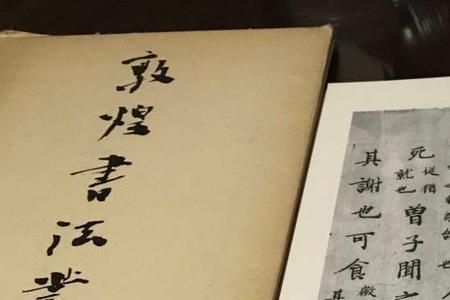 敦煌書法叢
死從猶就也曾子聞
其謝也可食